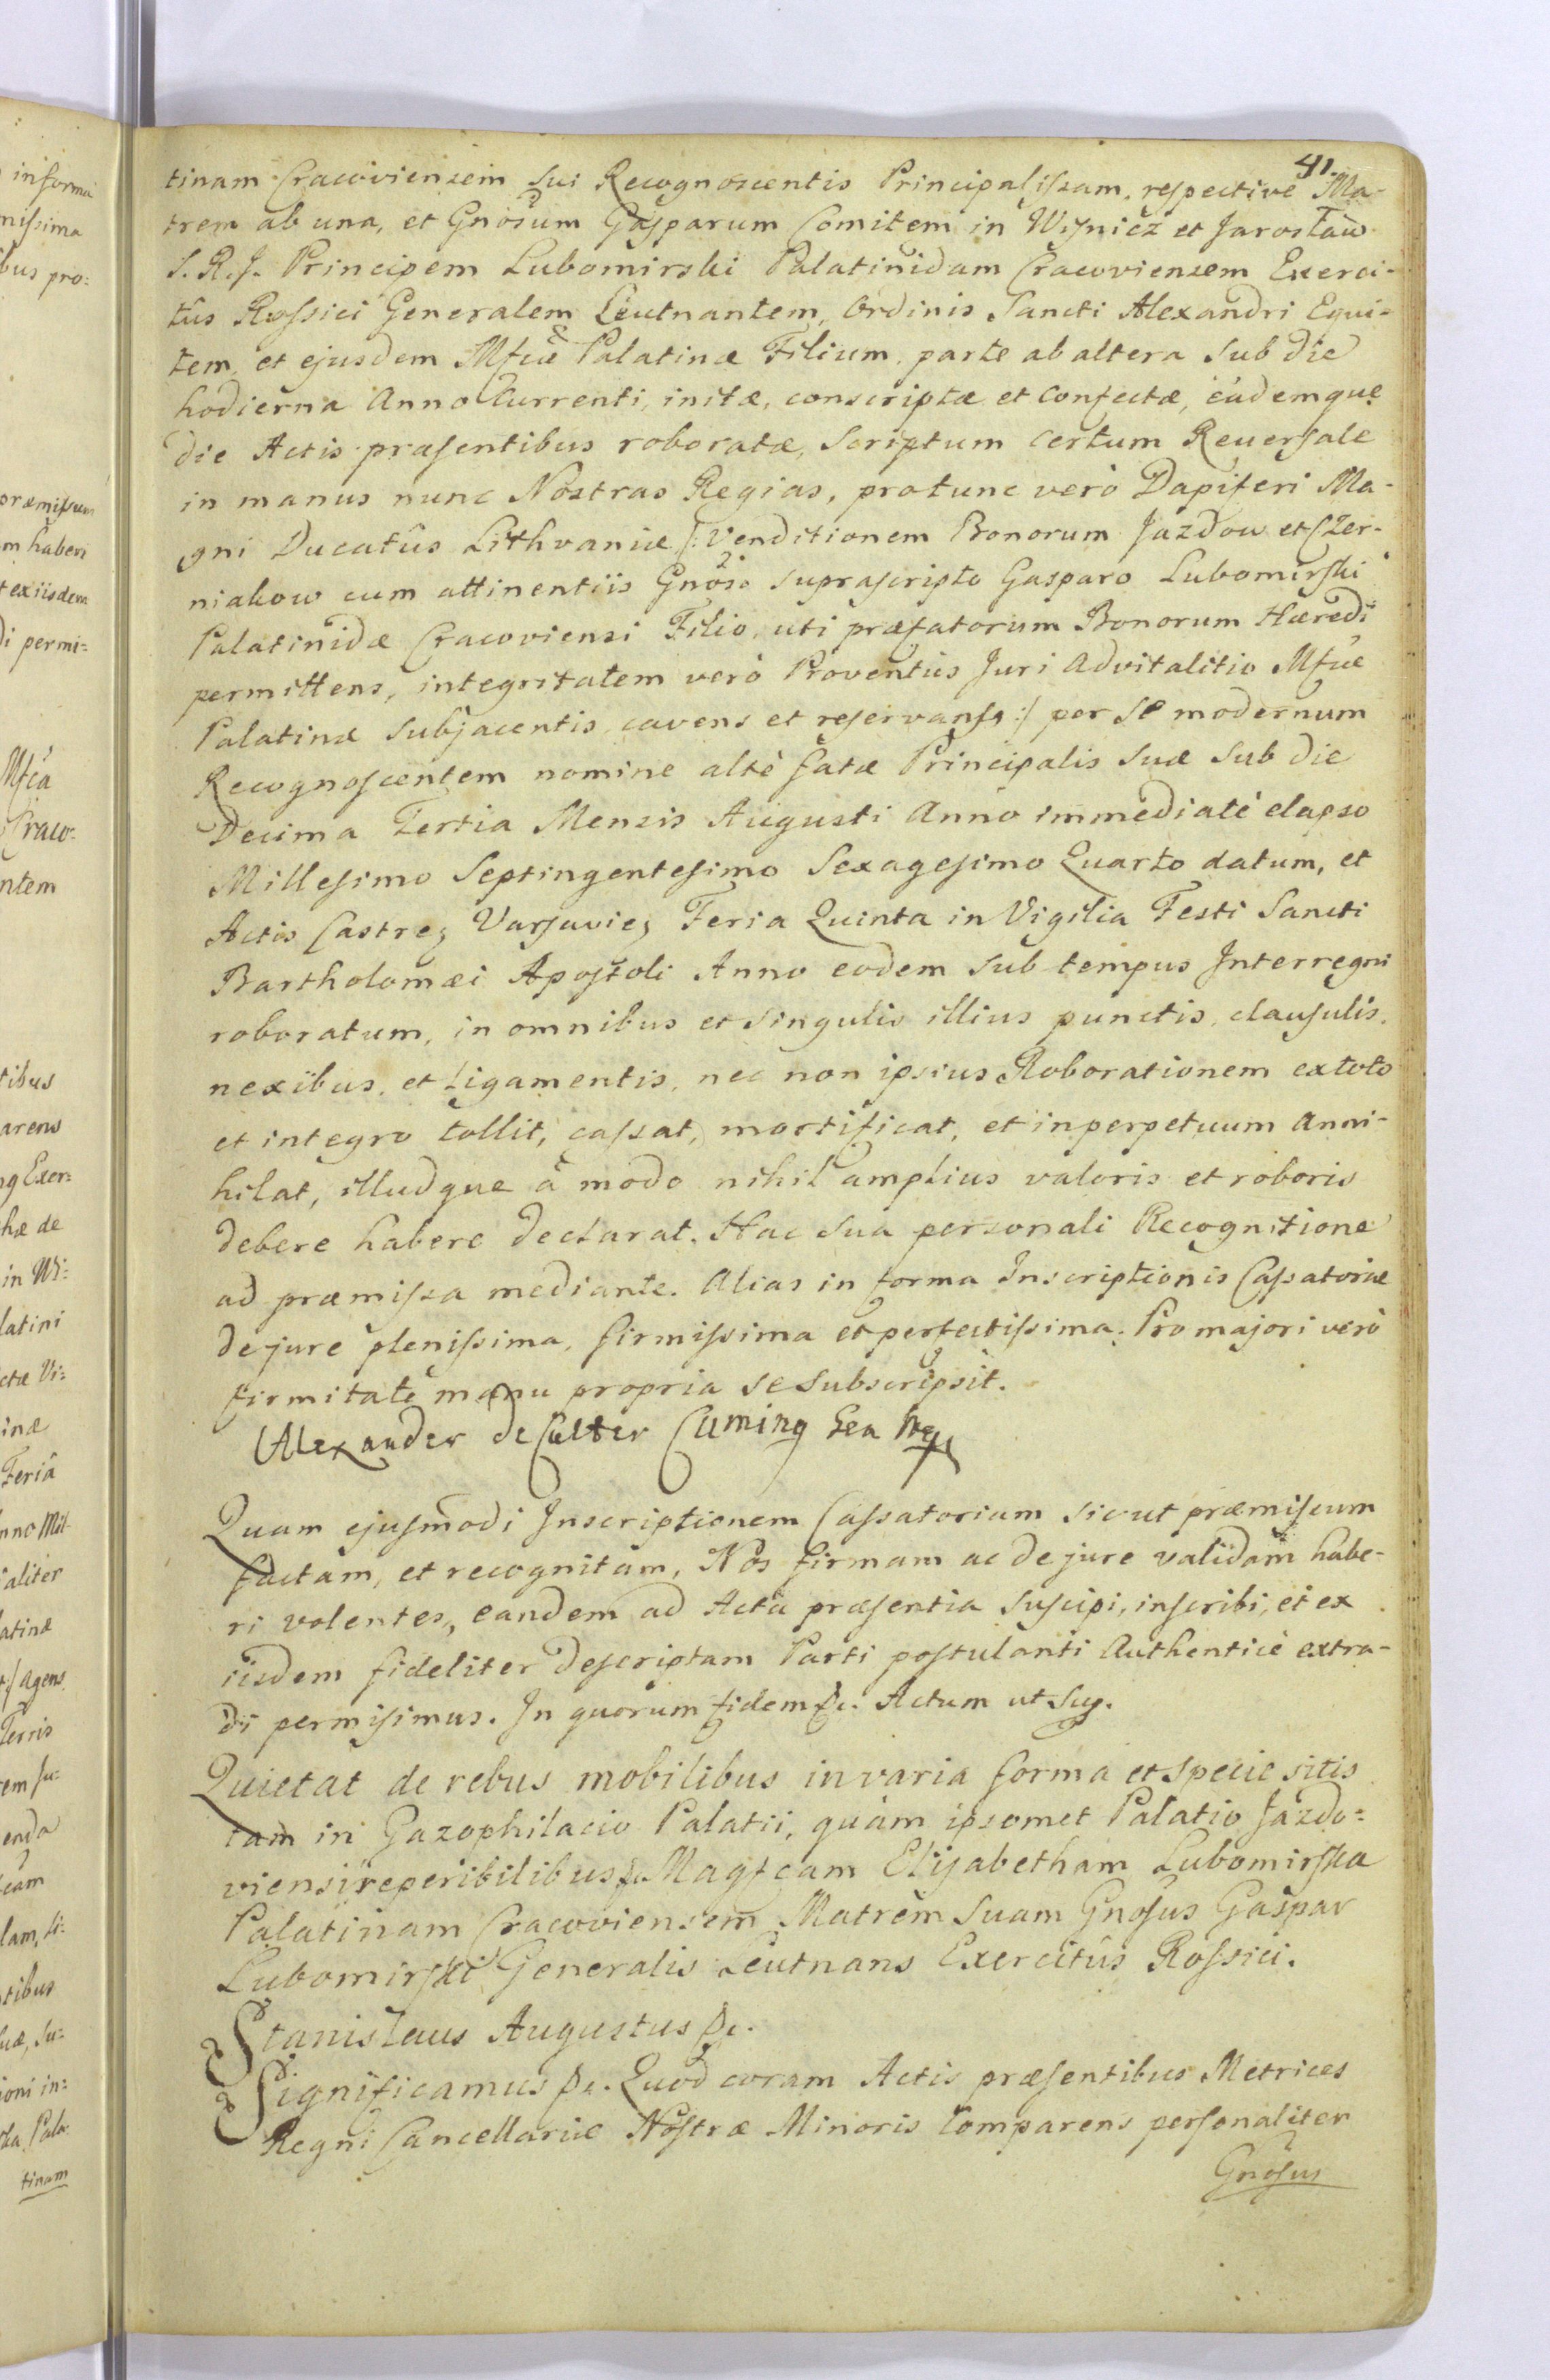 41.
tinam Cracoviensem sui Recognoscentis Principalissam, respective Ma-
trem ab una, et Gnosum Gasparum Comitem in Wisnicz et Jarosław
S. R. J. Principem Lubomirski Palatinidam Cracoviensem Exerci-
tus Rossici Generalem Leutnantem, Ordinis Sancti Alexandri Equi-
tem, et ejusdem Mfcæ Palatinæ Filium, parte ab altera sub die
hodierna Anno Currenti, initæ, conscriptæ et confectæ, eâdemque
die Actis præsentibus roboratæ, Scriptum certum Reversale
in manus nunc Nostras Regias, protunc verò Dapiferi Ma-
gni Ducatûs Lithvaniæ /: Venditionem Bonorum Jazdow et Czer-
niakow cum attinentiis Gnoso suprascripto Gasparo Lubomirski
Palatinidæ Cracoviensi Filio, uti præfatorum Bonorum Hæredi
permittens, integritatem verò Proventûs Juri Advitalitio Mfcæ
Palatinæ subjacentis, cavens et reservans :/ per se modernum
Recognoscentem nomine altè fatæ Principalis suæ sub die
Decima Tertia Mensis Augusti Anno immediatè elapso
Millesimo Septingentesimo Sexagesimo Quarto datum, et
Actis Castren Varsavien Feria Quinta in Vigilia Festi Sancti
Bartholomæi Apostoli Anno eodem sub tempus Interregni
roboratum, in omnibus et singulis illius punctis, clausulis,
nexibus, et Ligamentis, nec non ipsius Roborationem ex toto
et integro tollit, cassat, mortificat, et in perpetuum Anni-
hilat, illudque à modo nihil amplius valoris et roboris
debere habere declarat. Hac sua personali Recognitione
ad præmissa mediante. Alias in forma Inscriptionis Cassatoriæ
de jure plenissima, firmissima et perfectissima. Pro majori verò
firmitate manu propria se subscripsit.
Alexander de Culter Cuming
Quam ejusmodi Inscriptionem Cassatoriam sicut præmissum
factam, et recognitam, Nos firmam ac de jure validam habe-
ri volentes, eandem ad Acta præsentia suscipi, inscribi, et ex
iisdem fideliter descriptam Parti postulanti Authenticè extra-
di permisimus. In quorum fidem &c. Actum ut Sup.
Quietat de rebus mobilibus in varia forma et specie sitis
tam in Gazophilacio Palatii, quàm ipsomet Palatio Jazdo=
viensi reperibilibus &c. Magfcam Elisabetham Lubomirska
Palatinam Cracoviensem Matrem Suam Gnosus Gaspar
Lubomirski Generalis Leutnans Exercitûs Rossici.
Stanislaus Augustus &c.
Significamus &c. Quod coram Actis præsentibus Metrices
Regni Cancellariæ Nostræ Minoris Comparens personaliter
Gnosus